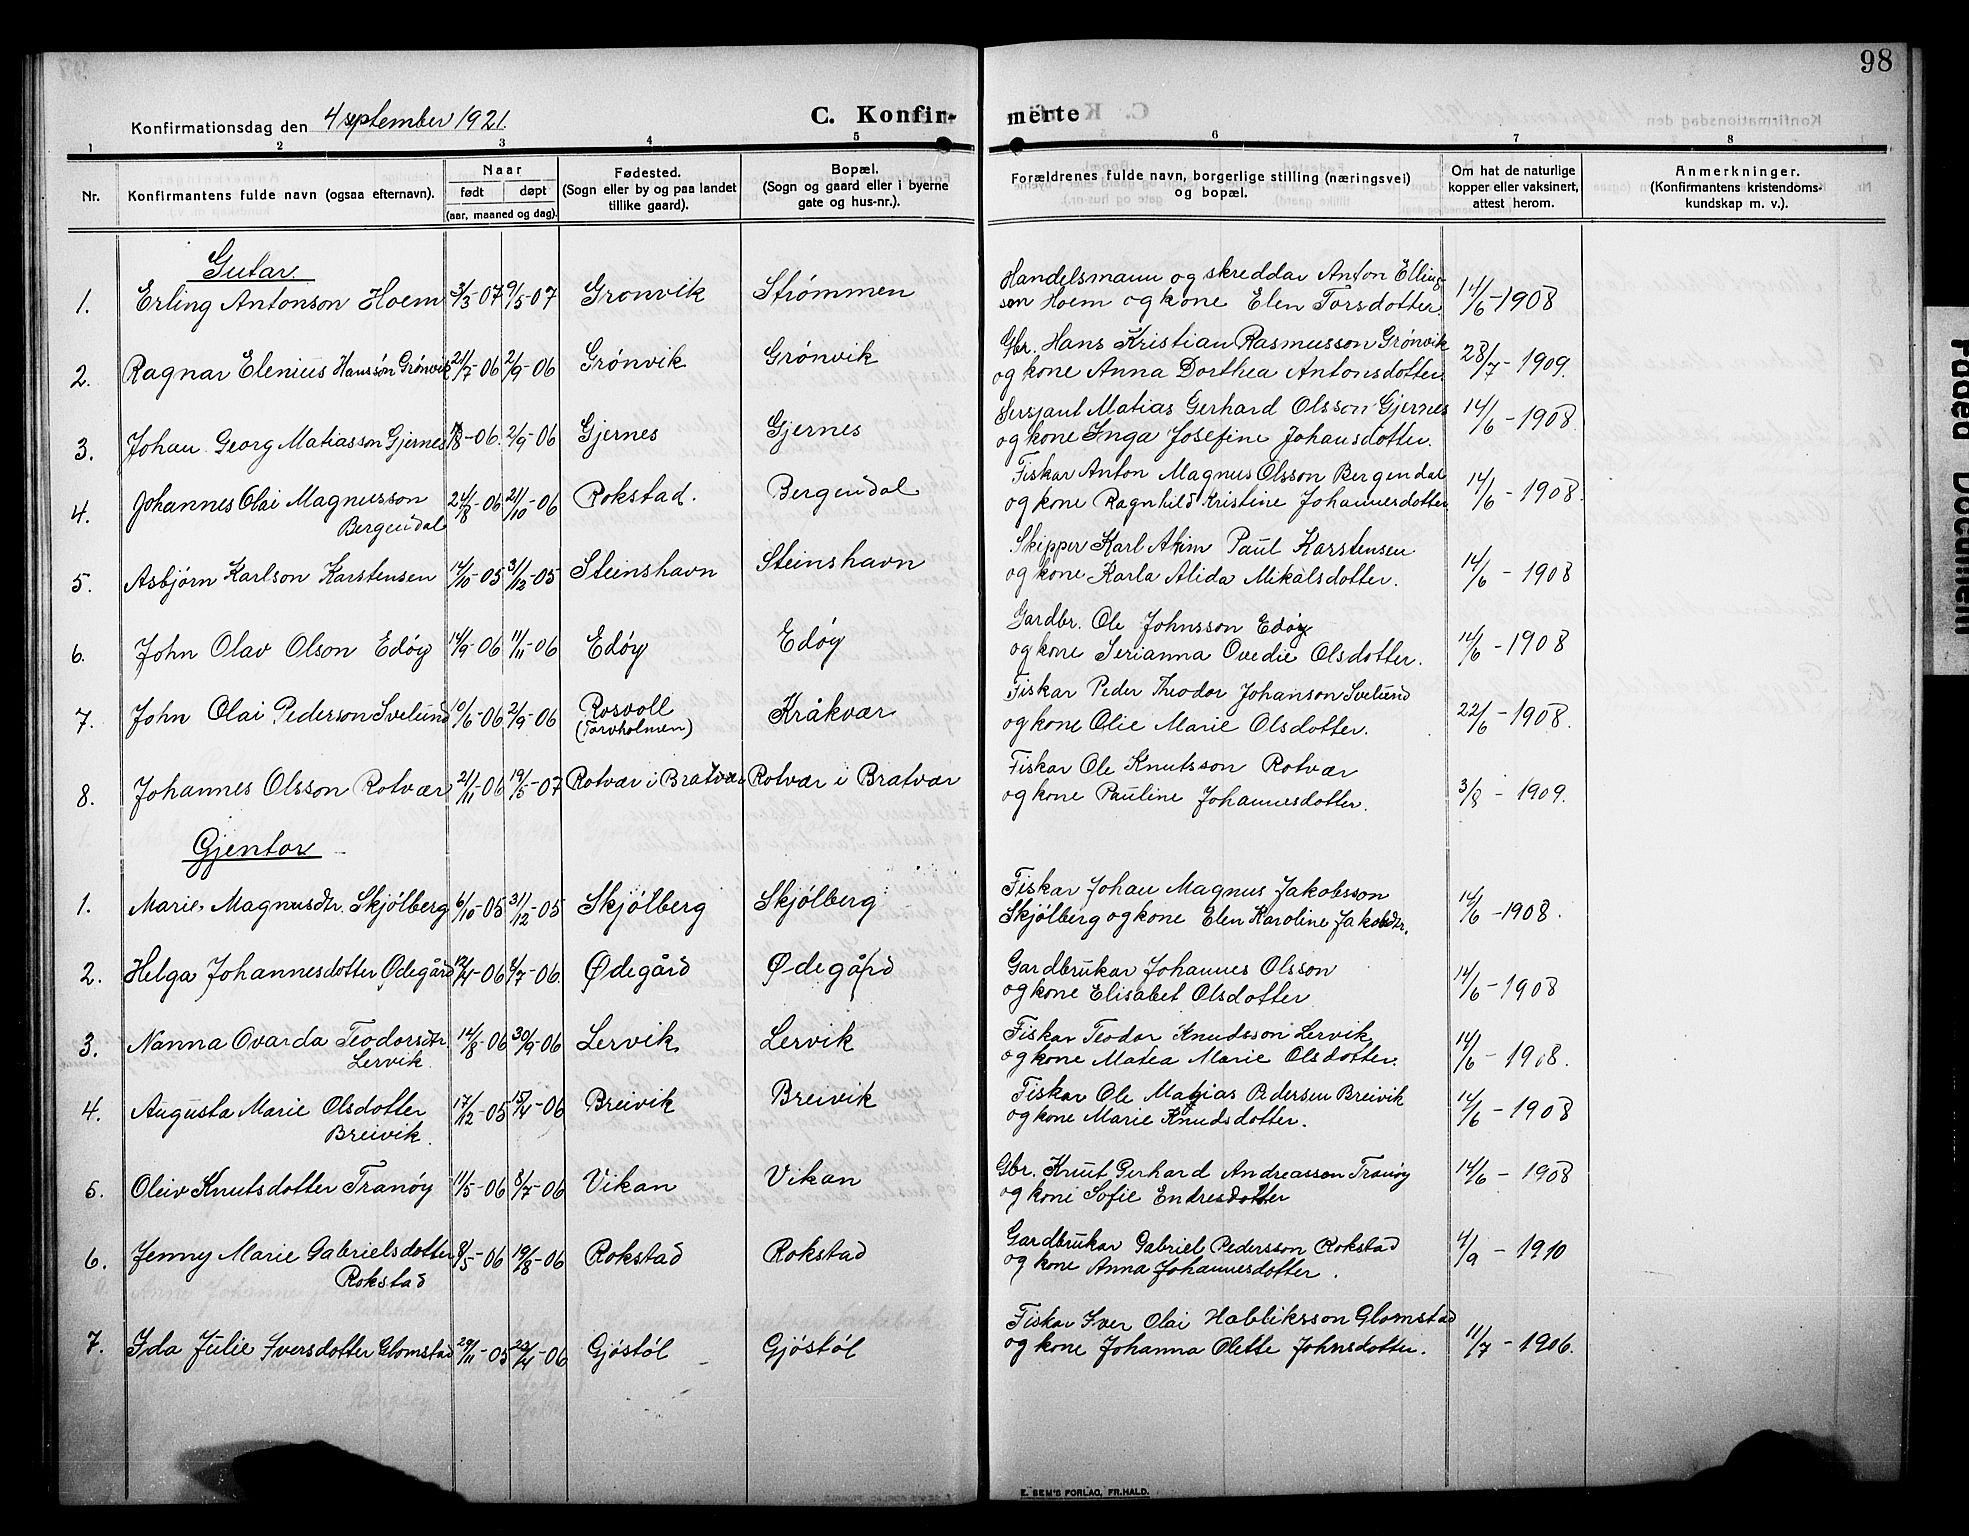 98
Konfirmationsdag den 4 september 1921.
C. Konfirmerte
1 2 3 4 5 6 7 8
Nr. Konfirmantens fulde navn (ogsaa efternavn). Naar født døpt (aar, maaned og dag). Fødested. (Sogn eller by og paa landet tillike gaard). Bopæl. (Sogn og gaard eller i byerne gate og hus-nr.). Forældrenes fulde navn, borgerlige stilling (næringsvei) og bopæl. Om hat de naturlige kopper eller vaksinert, attest herom. Anmerkninger. (Konfirmantens kristendomskundskap m. v.).
Gutar
1. Erling Antonson Hoem 3/3-07 9/5-07 Grønvik Strømmen Handelsmann og skreddar Anton Ellingson Hoem og kone Elen Torsdotter. 14/6-1908
2. Ragnar Elenius Hansson Grønvik 21/7-06 2/9-06 Grønvik Grønvik Gbr. Hans Kristian Rasmusson Grønvik og kone Anna Dorthea Antonsdotter 28/7-1909.
3. Johan Georg Matiasson Gjernes /8-06. 2/9-06 Gjernes Gjernes Sersjant Matias Gerhard Olsson Gjernes og kone Inga Josefine Johansdotter. 14/6-1908
4. Johannes Olai Magnusson Bergendal 24/8-06 21/10-06 Rokstad. Bergendal Fiskar Anton Magnus Olsson Bergendal og kone Ragnhild Kristine Johannesdotter 14/6-1908.
5. Asbjørn Karlson Karstensen 14/10-05 31/12-05 Steinshavn Steinshavn Skipper Karl Akim Paul Karstensen og kone Karla Alida Mikalsdotter. 14/6-1908
6. John Olav Olson Edøy 14/9-06 11/11-06 Edøy Edøy Gardbr. Ole Johnsson Edøy og kone Serianna Ovedie Olsdotter. 14/6-1908
7. John Olai Pederson Svelund 10/6-06 2/9-06 Rosvoll (Torvholmen) Kråkvær Fiskar Peder Theodor Johanson Svelund og kone Olie Marie Olsdotter. 22/6-1908.
8. Johannes Olsson Rotvær 21/11-06 19/5-07 Rotvær i Bratvær Rotvær i Bratvær Fiskar Ole Knutsson Rotvær og kone Pauline Johannesdotter. 3/8-1909.
Gjentor
1. Marie Magnusdtr. Skjølberg 6/10-05 31/12-05 Skjølberg Skjølberg Fiskar Johan Magnus Jakobsson Skjølberg og kone Elen Karoline Jakobdtr. 14/6-1908.
2. Helga Johannesdotter Ødegård 12/4-06 8/7-06. Ødegård Ødegård Gardbrukar Johannes Olsson og kone Elisabet Olsdotter 14/6-1908
3. Nanna Ovarda Teodorsdtr. Lervik. 14/8-06 30/9-06 Lervik Lervik Fiskar Teodor Knudsson Lervik og kone Matea Marie Olsdotter. 14/6-1908.
4. Augusta Marie Olsdotter Breivik. 17/12-05 15/4-06 Breivik Breivik Fiskar Ole Matias Pedersen Breivik og kone Marie Knudsdotter. 14/6-1908
5. Oleiv Knutsdotter Tranøy 11/5-06 8/7-06 Vikan Vikan Gbr. Knut Gerhard Andreassen Tranøy og kone Sofie Endresdotter 14/6-1908
6. Jenny Marie Gabrielsdotter Rokstad 8/5-06 19/8-06 Rokstad Rokstad Gardbrukar Gabriel Pedersson Rokstad og kone Anna Johannesdotter. 4/9-1910
7. Ida Julie Iversdotter Glomstad 29/11-05 22/4-06 Gjøstøl Gjøstøl Fiskar Iver Olai Halliksson Glomstad og kone Johanna Olette Johnsdotter. 11/7-1906.
E. SEM'S FORLAG, FR.HALD.
Faded Document